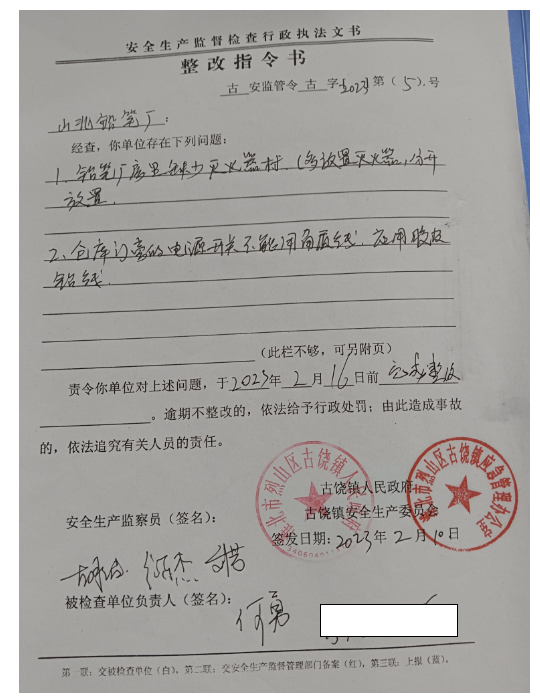 安全生产监督检查行政执法文书
整改指令书
古 安监管令 古 字 2023 第 ( 5 ) 号
山北铅笔厂:
经查,你单位存在下列问题:
1、铅笔厂库里缺少灭火器材,(多放置灭火器,分开
放置.
2、仓库门旁的电源开关不能用 线.应用胶皮
铅线.
(此栏不够,可另附页)
责令你单位对上述问题,于2023年2月16日前完成整改
。逾期不整改的,依法给予行政处罚;由此造成事故
的,依法追究有关人员的责任。
古饶镇人民政府
安全生产监察员(签名): 古饶镇安全生产委员会
签发日期:2023年2月10日
被检查单位负责人(签名):
何勇
第一联:交被检查单位(白)。第二联:交安全生产监督管理部门备案(红)。第三联:上报(蓝)。
淮北市烈山区古饶镇人民政府
淮北市烈山区古饶镇应急管理办公室